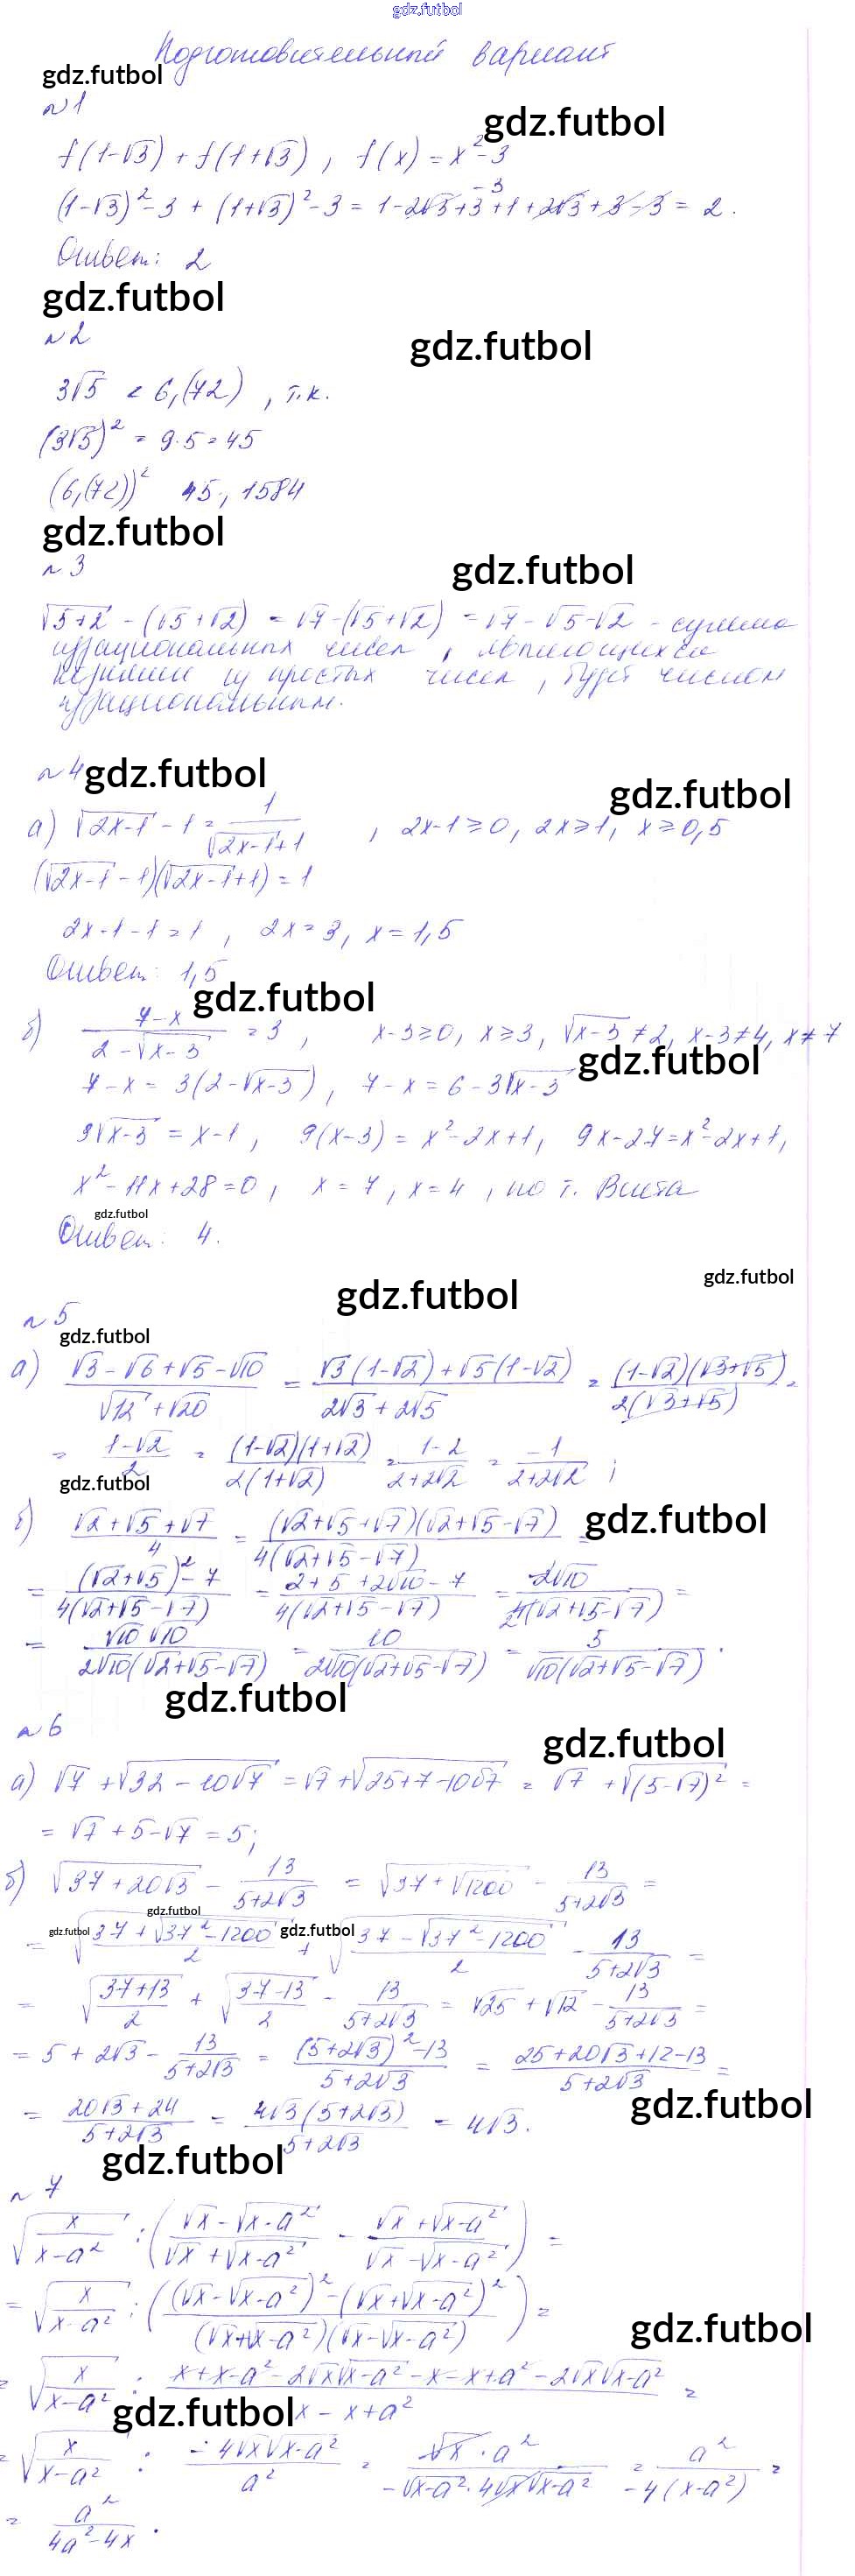 gdz.futbol
Подготовительный вариант
gdz.futbol
№1
gdz.futbol
f(1-√3) + f(1+√3), f(x) = x²-3
(1-√3)²-3 + (1+√3)²-3 = 1-2√3+3-3+1+2√3+3-3 = 2.
Ответ: 2
gdz.futbol
№2
gdz.futbol
3√5 < 6,(72), т.к.
(3√5)² = 9·5 = 45
(6,(72))² 45,1584
gdz.futbol
№3
gdz.futbol
√5+2 - (√5+√2) = √7-(√5+√2) = √7-√5-√2 - сумма
иррациональных чисел, являющихся
корнями из простых чисел, будет числом
иррациональным.
№4
gdz.futbol
gdz.futbol
а) √(2x-1) - 1 = 1/(√(2x-1)+1), 2x-1≥0, 2x≥1, x≥0,5
(√(2x-1) - 1)(√(2x-1)+1) = 1
2x-1-1 = 1, 2x = 3, x = 1,5
Ответ: 1,5
gdz.futbol
б) (7-x)/(2-√(x-3)) = 3, x-3≥0, x≥3, √(x-3)≠2, x-3≠4, x≠7
gdz.futbol
7-x = 3(2-√(x-3)), 7-x = 6-3√(x-3)
3√(x-3) = x-1, 9(x-3) = x²-2x+1, 9x-27 = x²-2x+1,
x²-11x+28=0, x=7, x=4, по т. Виета
gdz.futbol
Ответ: 4.
gdz.futbol
gdz.futbol
№5
gdz.futbol
а) (√3-√6+√5-√10)/(√12+√20) = (√3(1-√2)+√5(1-√2))/(2√3+2√5) = ((1-√2)(√3+√5))/(2(√3+√5)) =
= (1-√2)/2 = ((1-√2)(1+√2))/(2(1+√2)) = (1-2)/(2+2√2) = -1/(2+2√2);
gdz.futbol
gdz.futbol
б) (√2+√5+√7)/4 = ((√2+√5+√7)(√2+√5-√7))/(4(√2+√5-√7)) =
= ((√2+√5)²-7)/(4(√2+√5-√7)) = (2+5+2√10-7)/(4(√2+√5-√7)) = 2√10/(4(√2+√5-√7)) =
= (√10 √10)/(2√10(√2+√5-√7)) = 10/(2√10(√2+√5-√7)) = 5/(√10(√2+√5-√7)).
gdz.futbol
№6
gdz.futbol
а) √7+√(32-10√7) = √7+√(25+7-10√7) = √7+√((5-√7)²) =
= √7+5-√7 = 5;
б) √(37+20√3) - 13/(5+2√3) = √(37+√1200) - 13/(5+2√3) =
gdz.futbol
gdz.futbol
gdz.futbol
= √((37+√(37²-1200))/2) + √((37-√(37²-1200))/2) - 13/(5+2√3) =
= √((37+13)/2) + √((37-13)/2) - 13/(5+2√3) = √25+√12 - 13/(5+2√3) =
= 5+2√3 - 13/(5+2√3) = ((5+2√3)²-13)/(5+2√3) = (25+20√3+12-13)/(5+2√3) =
gdz.futbol
= (20√3+24)/(5+2√3) = (4√3(5+2√3))/(5+2√3) = 4√3.
gdz.futbol
№7
√(x/(x-a²)) : ((√x-√(x-a²))/(√x+√(x-a²)) - (√x+√(x-a²))/(√x-√(x-a²))) =
= √(x/(x-a²)) : (((√x-√(x-a²))²-(√x+√(x-a²))²)/((√x+√(x-a²))(√x-√(x-a²)))) =
gdz.futbol
= √(x/(x-a²)) : (x+x-a²-2√x√(x-a²)-x-x+a²-2√x√(x-a²))/(x-x+a²) =
gdz.futbol
= √(x/(x-a²)) : (-4√x√(x-a²))/a² = (√x·a²)/(-√(x-a²)·4√x√(x-a²)) = a²/(-4(x-a²)) =
= a²/(4a²-4x).